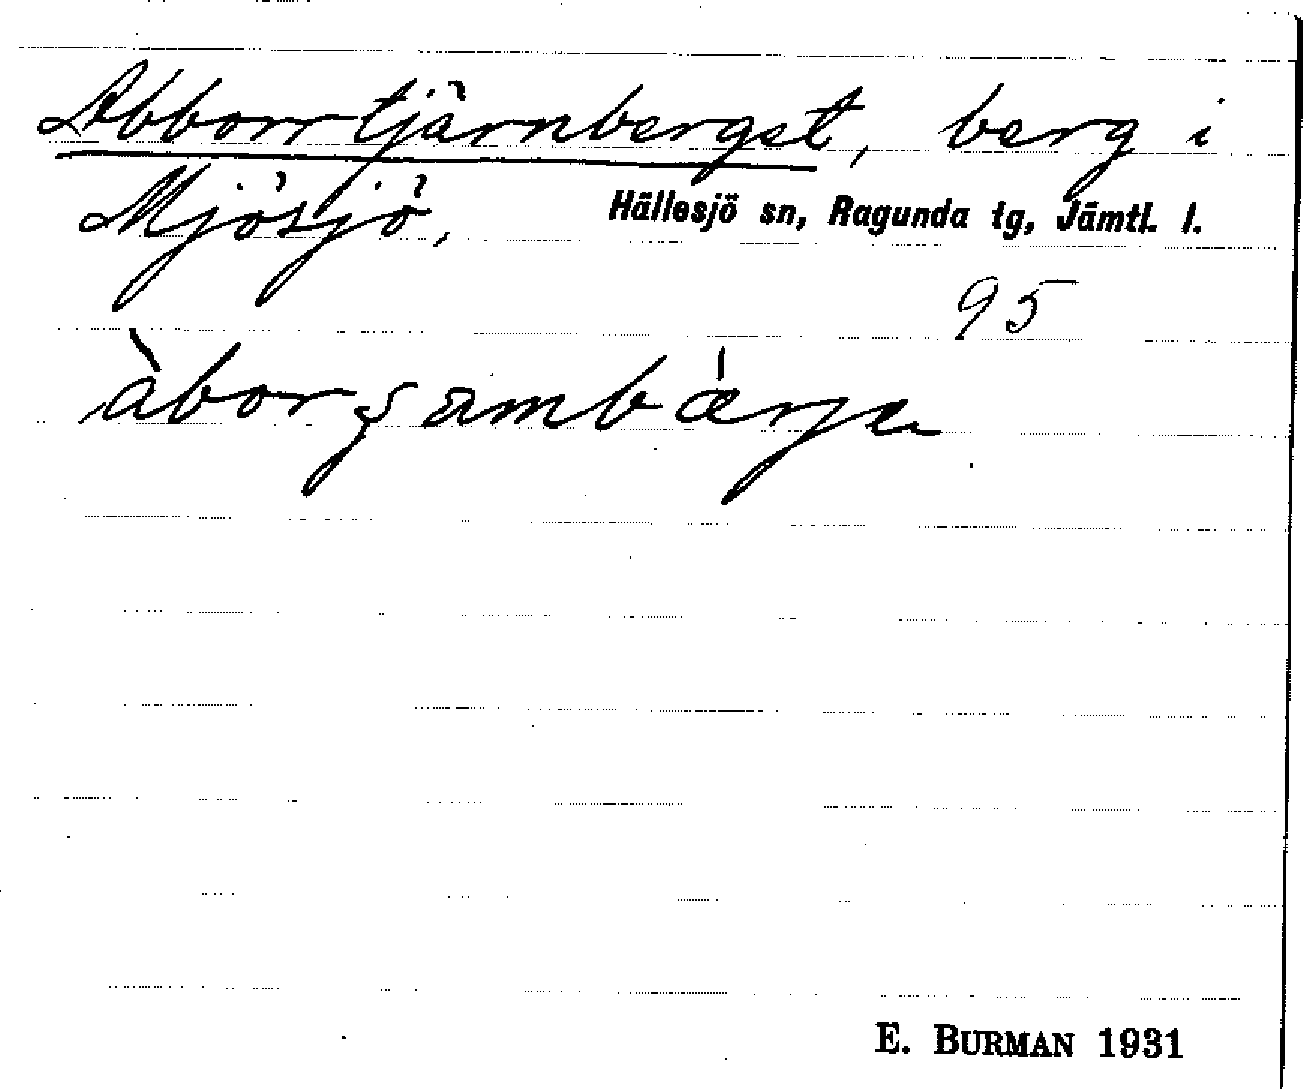 Abborrtjärnberget, berg i
Mjösjö, Hällesjö sn, Ragunda tg, Jämtl. l.
95
E. BURMAN 1931